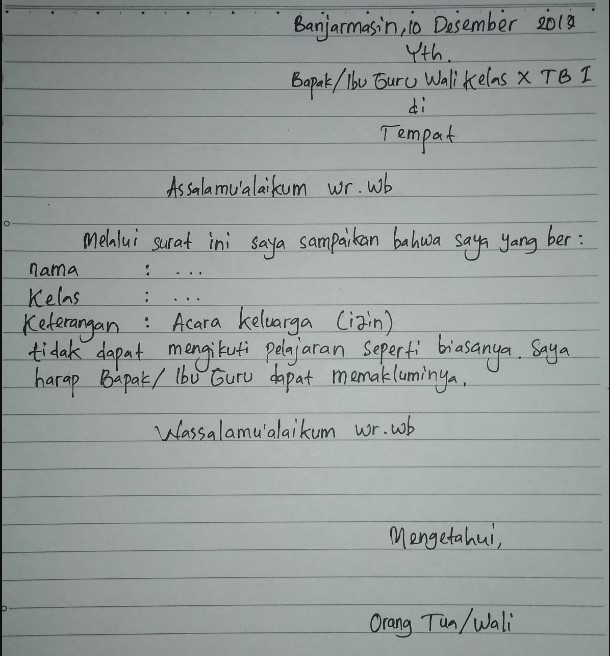 Banjarmasin, 10 Desember 2019
Yth.
Bapak/Ibu Guru Wali Kelas X TB I
di
Tempat
Assalamu'alaikum wr.wb
Melalui surat ini saya sampaikan bahwa saya yang ber :
nama : ...
Kelas : ...
Keterangan : Acara keluarga (izin)
tidak dapat mengikuti pelajaran seperti biasanya. Saya
harap Bapak/ Ibu Guru dapat memakluminya.
Wassalamu'alaikum wr.wb
Mengetahui,
Orang Tua/Wali